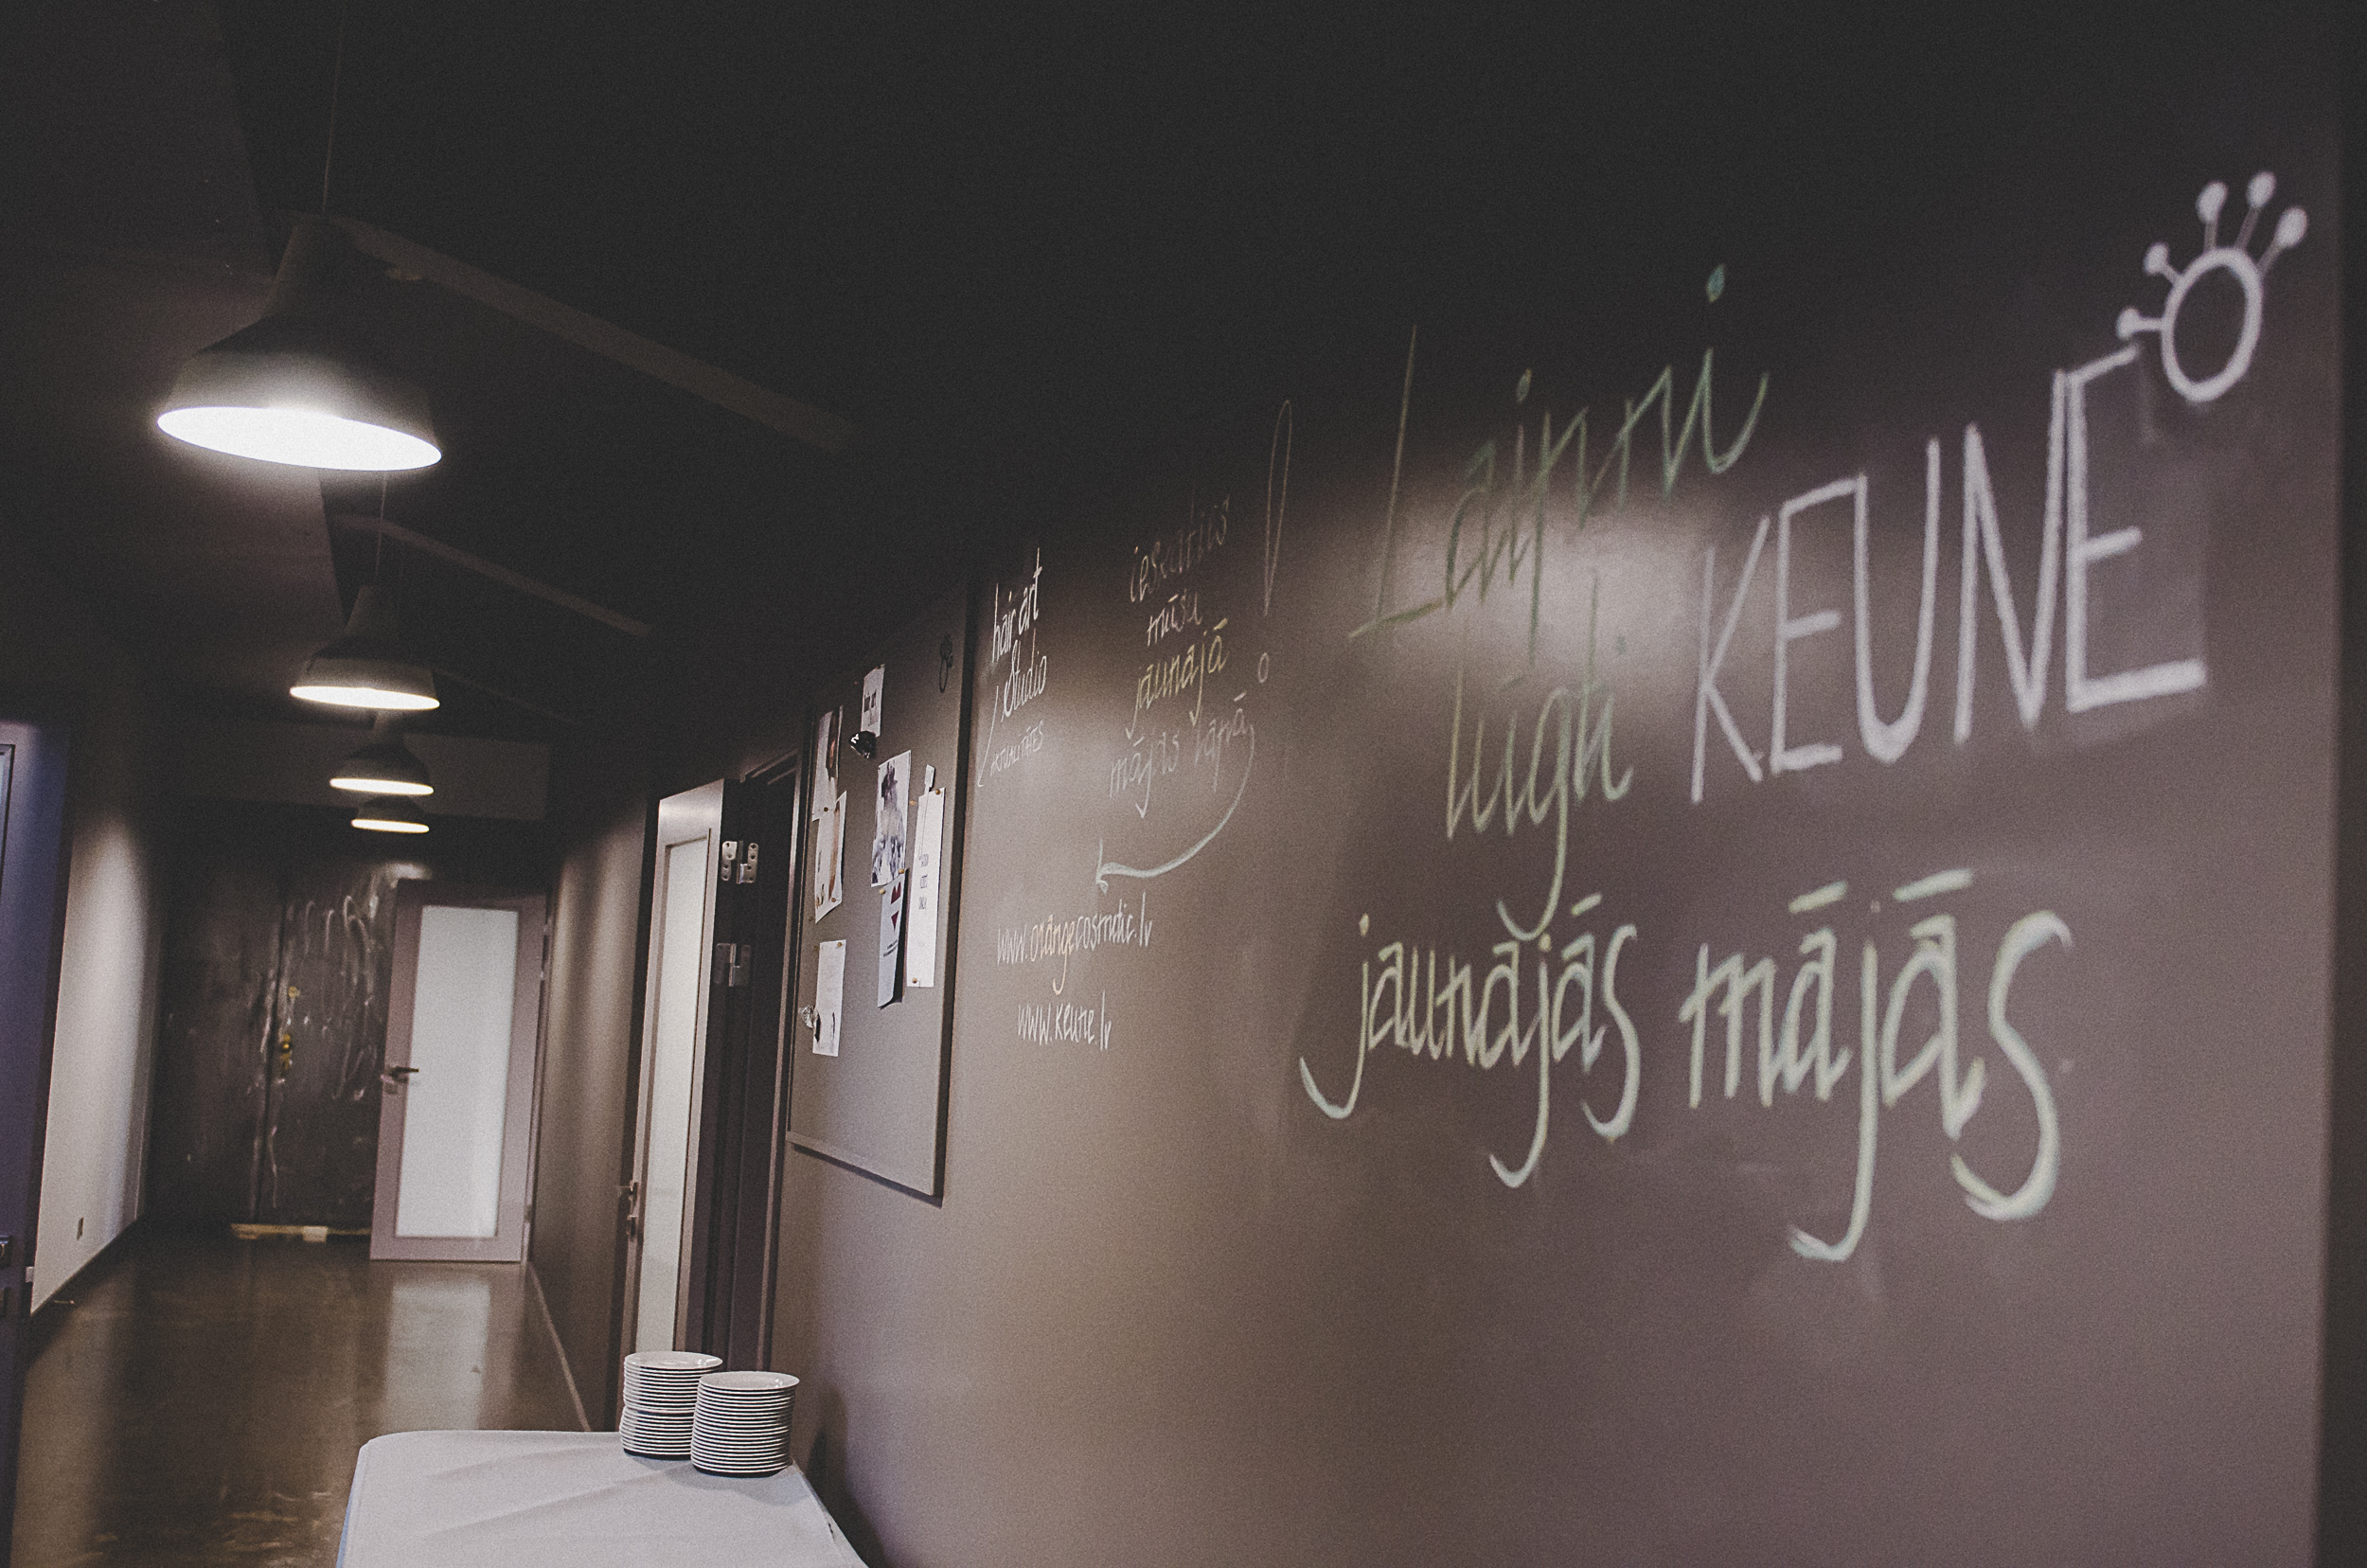 hair art
studio
AKTUALITĀTES
ieskaties
mūsu
jaunajā
mājas lapā
!
www.orangecosmetic.lv
www.keune.lv
Laipni
lūgti KEUNE
jaunajās mājās